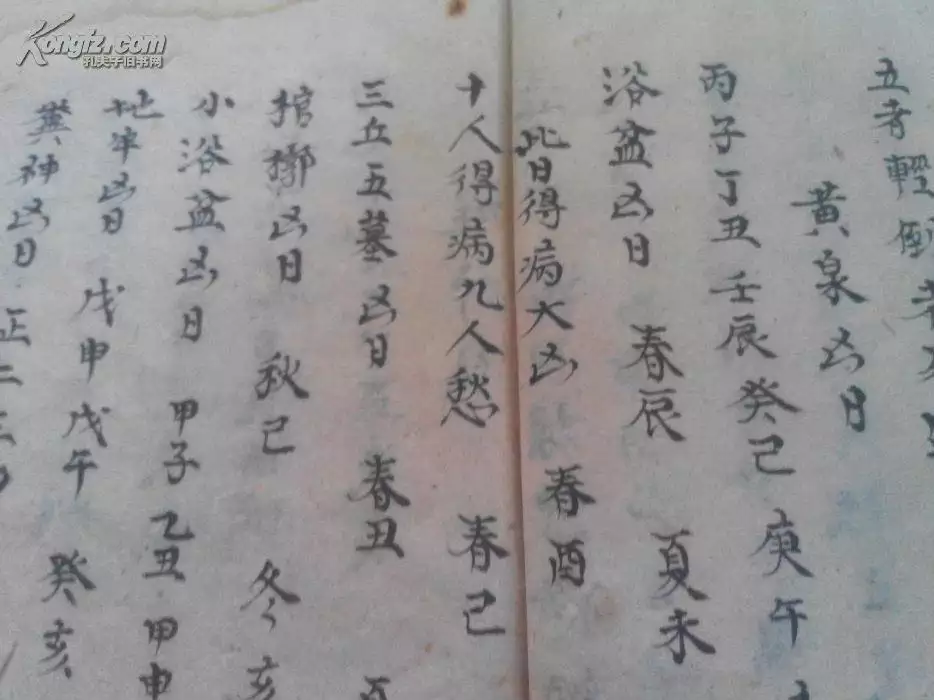 Kongfz.com
孔夫子旧书网
五者輕
黄泉凶日
丙子丁丑壬辰癸己庚午
浴盆凶日 春辰 夏未
此日得病大凶 春酉
十人得病九人愁 春己
三丘五墓凶日 春丑
棺槨凶日 秋己 冬亥
小浴盆凶日 甲子乙丑甲申
凶日 戊申戊午癸亥
神凶日 正二三